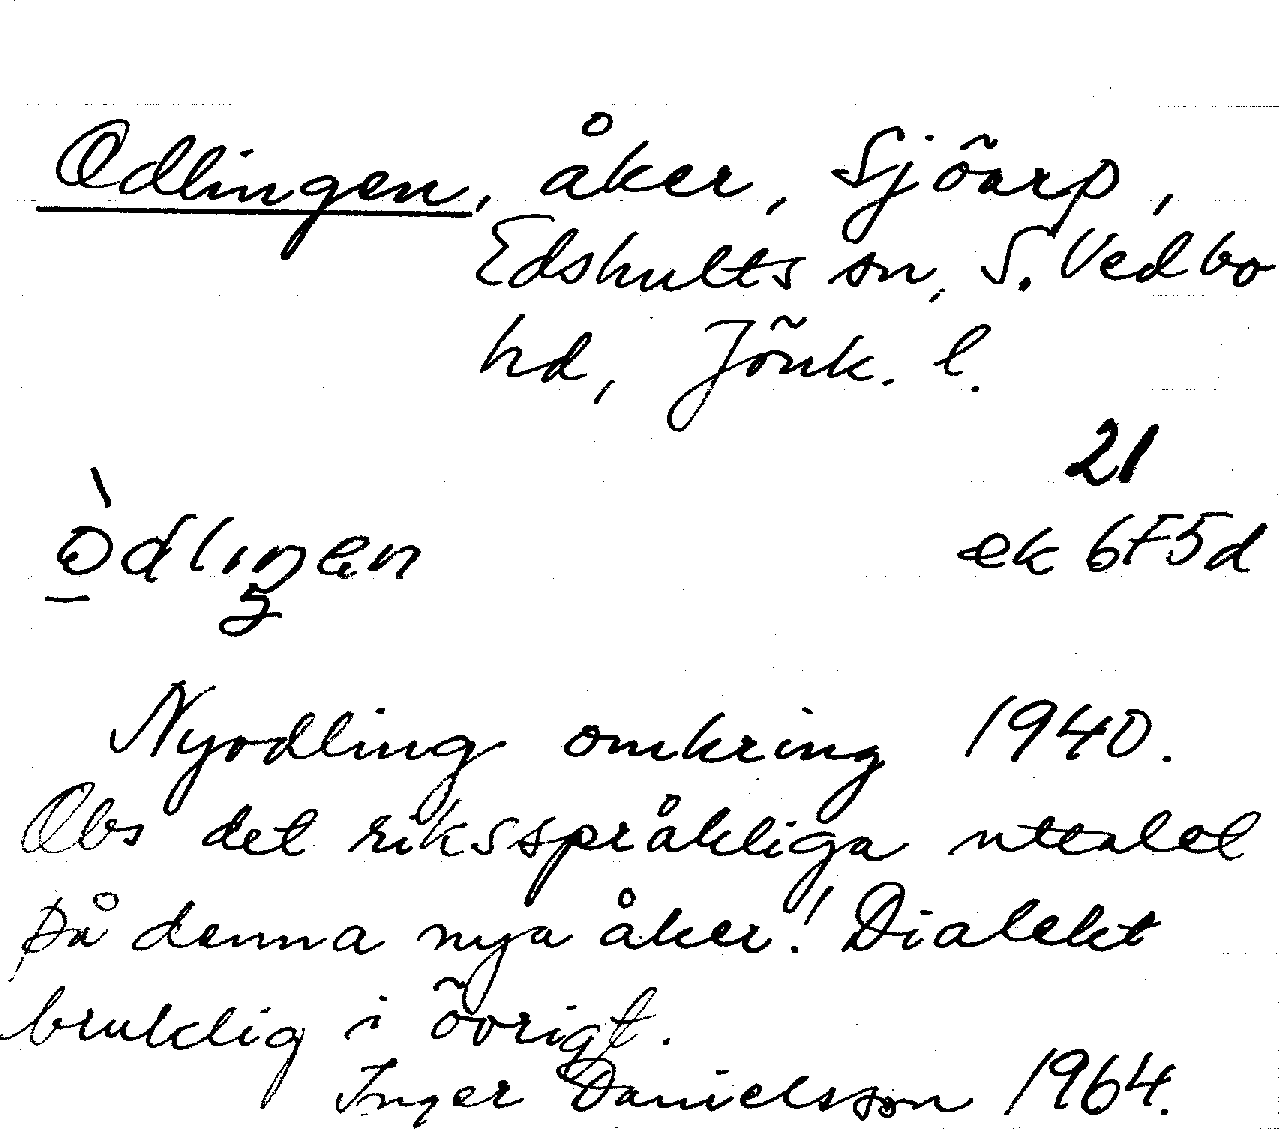 Odlingen, åker, Sjöarp,
Edshults sn, S. Vedbo
hd, Jönk. l.
21
òdlıŋen
ek 6F5d
Nyodling omkring 1940.
Obs det riksspråkliga uttalet
på denna nya åker! Dialekt
bruklig i övrigt.
Inger Danielsson 1964.